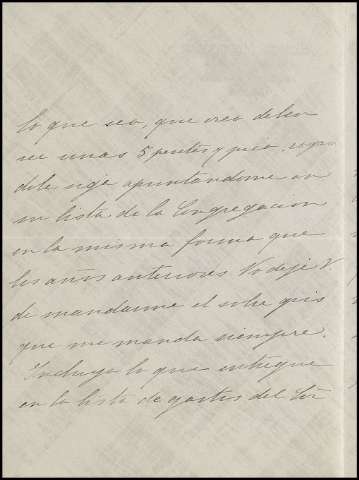 lo que sea, que creo deben
ser unas 5 pesetas y pico, rogan
dole siga apuntandome en
su lista de la Congregacion
en la misma forma que
los años anteriores No deje V
de mandarme el sobre
que me manda siempre.
Incluya lo que entregue
en la lista de gastos del